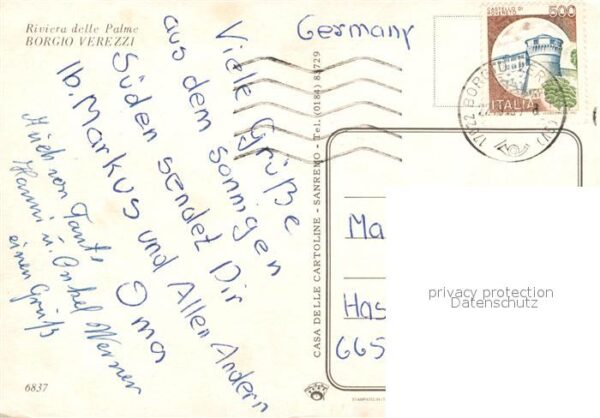 Riviera delle Palme
BORGIO VEREZZI
Germany
Viele Grüße
aus dem sonnigen
Süden sendet Dir
lb. Markus und Allen Andern
Oma
Auch von Tante
Hanni u. Onkel Werner
einen Gruß
6837
CASA DELLE CARTOLINE - SANREMO - Tel. (0184) 85729
CASTELLO DI
ROVERETO
500
ITALIA
17022 BORGIO VEREZZI (SV)
Ma
Has
665
privacy protection
Datenschutz